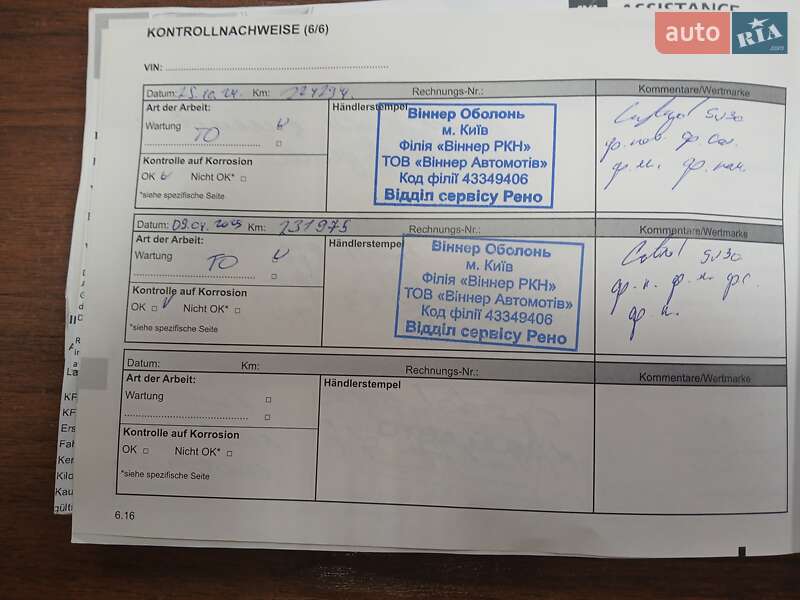 ASSISTANCE
auto RIA.com
KONTROLLNACHWEISE (6/6)
VIN:
Datum: 25.10.24. Km: 224294. Rechnungs-Nr.: Kommentare/Wertmarke
Art der Arbeit: Händlerstempel
Wartung ТО
Kontrolle auf Korrosion
OK Nicht OK*
*siehe spezifische Seite
Віннер Оболонь
м. Київ
Філія «Віннер РКН»
ТОВ «Віннер Автомотів»
Код філії 43349406
Відділ сервісу Рено
5W30
ф. пов. ф. сал.
ф.м.
Datum: 09.04.2025 Km: 231975 Rechnungs-Nr.: Kommentare/Wertmarke
Art der Arbeit: Händlerstempel
Wartung ТО
Kontrolle auf Korrosion
OK Nicht OK*
*siehe spezifische Seite
Віннер Оболонь
м. Київ
Філія «Віннер РКН»
ТОВ «Віннер Автомотів»
Код філії 43349406
Відділ сервісу Рено
5W30
Datum: Km: Rechnungs-Nr.: Kommentare/Wertmarke
Art der Arbeit: Händlerstempel
Wartung
Kontrolle auf Korrosion
OK Nicht OK*
*siehe spezifische Seite
6.16